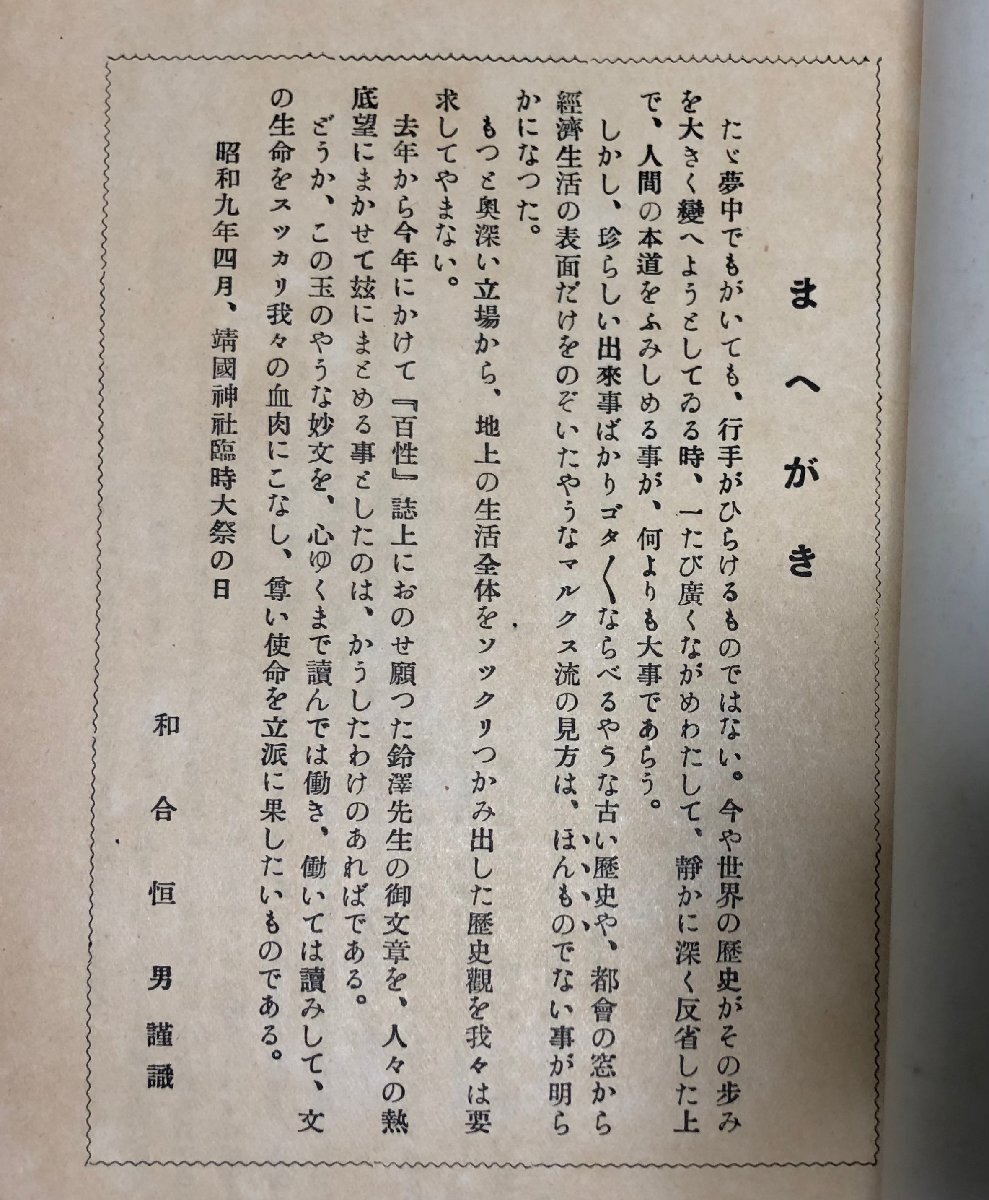 まへがき
たゞ夢中でもがいても、行手がひらけるものではない。今や世界の歷史がその步み
を大きく變へようとしてゐる時、一たび廣くながめわたして、靜かに深く反省した上
で、人間の本道をふみしめる事が、何よりも大事であらう。
しかし、珍らしい出來事ばかりゴタ〱ならべるやうな古い歷史や、都會の窓から
經濟生活の表面だけをのぞいたやうなマルクス流の見方は、ほんものでない事が明ら
かになつた。
もつと奧深い立場から、地上の生活全体をソツクリつかみ出した歷史觀を我々は要
求してやまない。
去年から今年にかけて『百性』誌上におのせ願つた鈴澤先生の御文章を、人々の熱
底望にまかせて玆にまとめる事としたのは、かうしたわけのあればである。
どうか、この玉のやうな妙文を、心ゆくまで讀んでは働き、働いては讀みして、文
の生命をスツカリ我々の血肉にこなし、尊い使命を立派に果したいものである。
昭和九年四月、靖國神社臨時大祭の日
和合恒男謹識